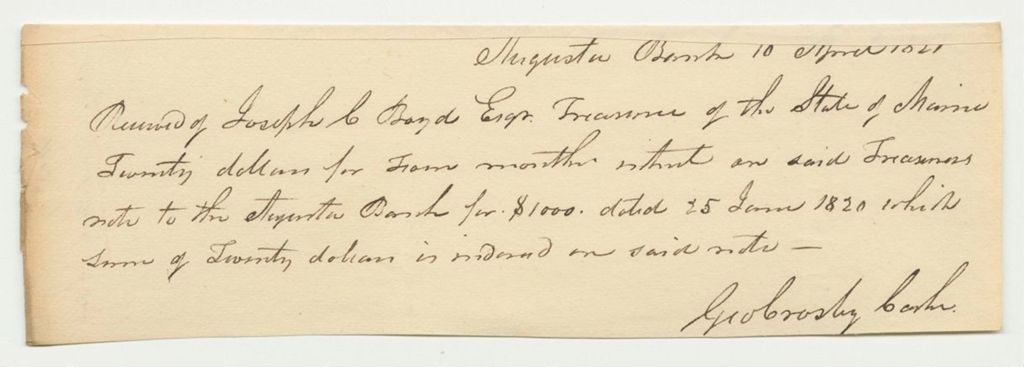 Augusta Bank 10 April 1821
Received of Joseph C Boyd Esqr. Treasurer of the State of Maine
Twenty dollars for Four months intrest on said Treasurers
note to the Augusta Bank for $1000. dated 25 June 1820 which
sum of Twenty dollars is indorsd on said note —
Geo Crosby Cashr.